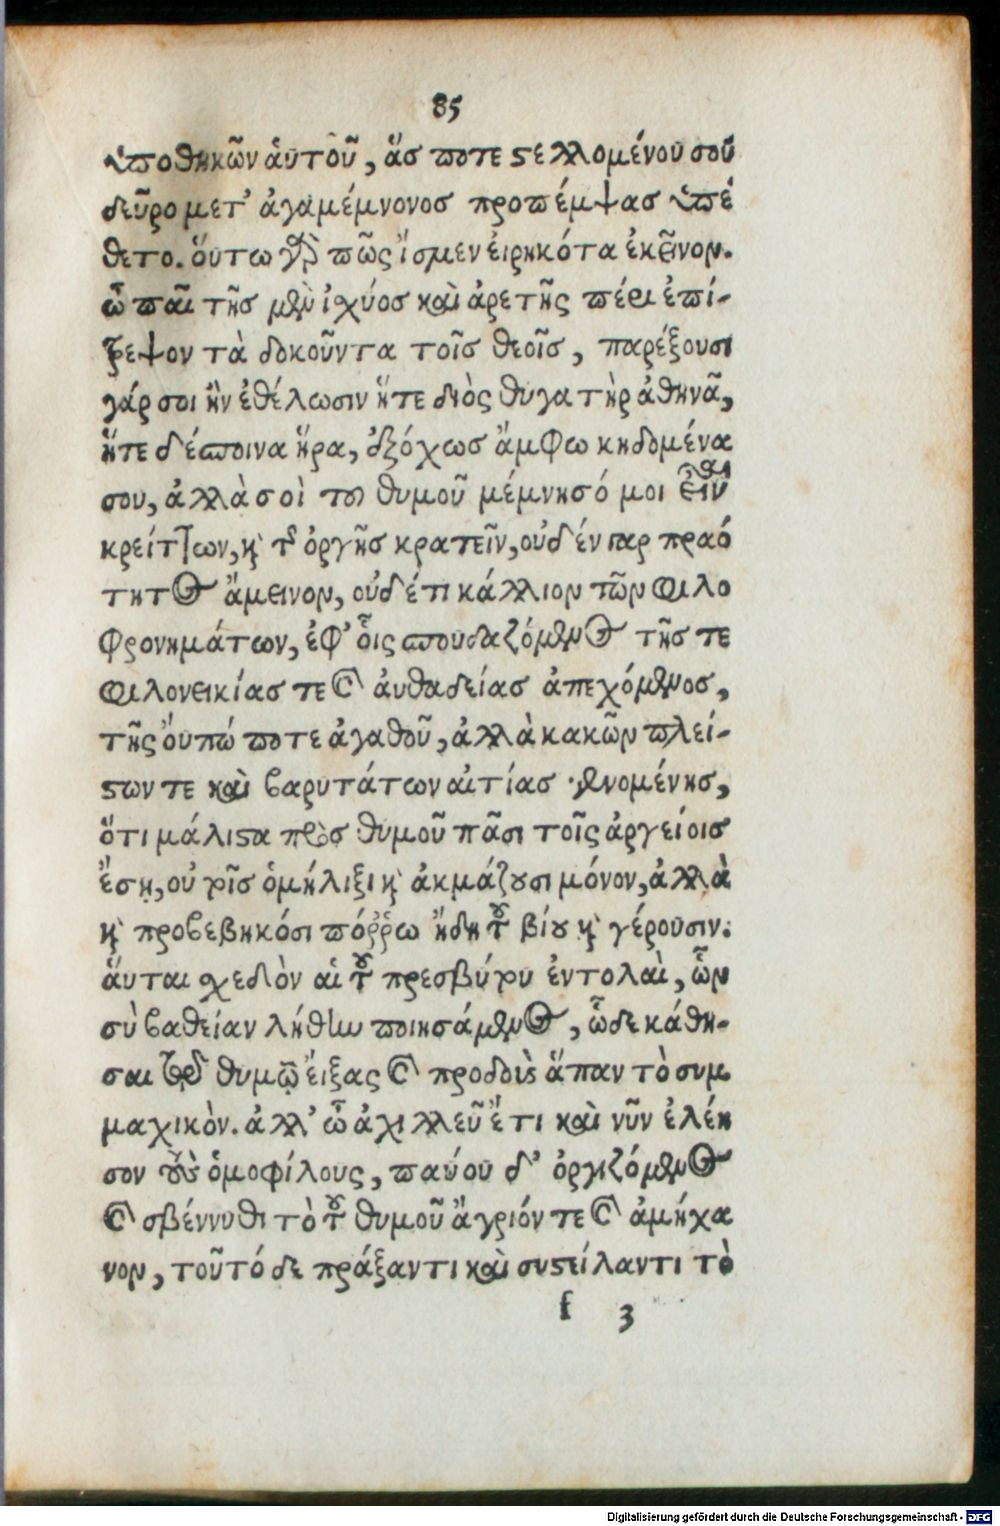 85
ὑποθηκῶν ἁυτοῦ, ἅσ ποτε στελλομένου σοῦ
δεῦρο μετ' ἀγαμέμνονοσ προπέμψασ ὑπέ
θετο. ὅυτω γὰρ πῶς ἴσμεν ἐιρηκότα ἐκεῖνον.
ὦ παῖ τῆσ μὲν ἰχύοσ καὶ ἀρετῆς πέρι ἐπί-
τρεψον τὰ δοκοῦντα τοῖσ θεοῖσ, παρέξουσι
γάρ σοι ἢν ἐθέλωσιν ἥτε διὸς θυγατὴρ ἀθηνᾶ,
ἥτε δέσποινα ἥρα, ἐξόχωσ ἄμφω κηδομένα
σου, ἀλλὰ σοὶ τοῦ θυμοῦ μέμνησό μοι εἶναι
κρείττων, καὶ τῆς ὀργῆσ κρατεῖν, οὐδέν γαρ πραό
τητος ἄμεινον, οὐδέ τι κάλλιον τῶν φιλο
φρονημάτων, ἐφ' οἷς σπουδαζόμενος τῆσ τε
φιλονεικίασ τε καὶ ἀυθαδείασ ἀπεχόμενοσ,
τῆς ὄυπώ ποτε ἀγαθοῦ, ἀλλὰ κακῶν πλεί-
στων τε καὶ βαρυτάτων αἰτίασ γινομένησ,
ὅτι μάλιστα πρὸσ θυμοῦ πᾶσι τοῖς ἀργείοισ
ἔσῃ, οὐ τοῖσ ὁμήλιξι καὶ ἀκμάζουσι μόνον, ἀλλὰ
καὶ προβεβηκόσι πόῤῥω ἤδη τοῦ βίου καὶ γέρουσιν:
ἅυται χεδὸν αἱ τοῦ πρεσβύτου ἐντολαὶ, ὧν
σὺ βαθείαν λήθην ποιησάμενος, ὧδε κάθη-
σαι τῷ θυμῷ ἔιξας καὶ προδοὺς ἅπαν τὸ συμ
μαχικὸν. ἀλλ' ὦ ἀχιλλεῦ ἔτι καὶ νῦν ἐλέη
σον τοὺς ὁμοφίλους, παύου δ' ὀργιζόμενος
καὶ σβέννυθι τὸ τοῦ θυμοῦ ἄγριόν τε καὶ ἀμήχα
νον, τοῦτό δε πράξαντι καὶ συστείλαντι τὸ
f 3
Digitalisierung gefördert durch die Deutsche Forschungsgemeinschaft - DFG